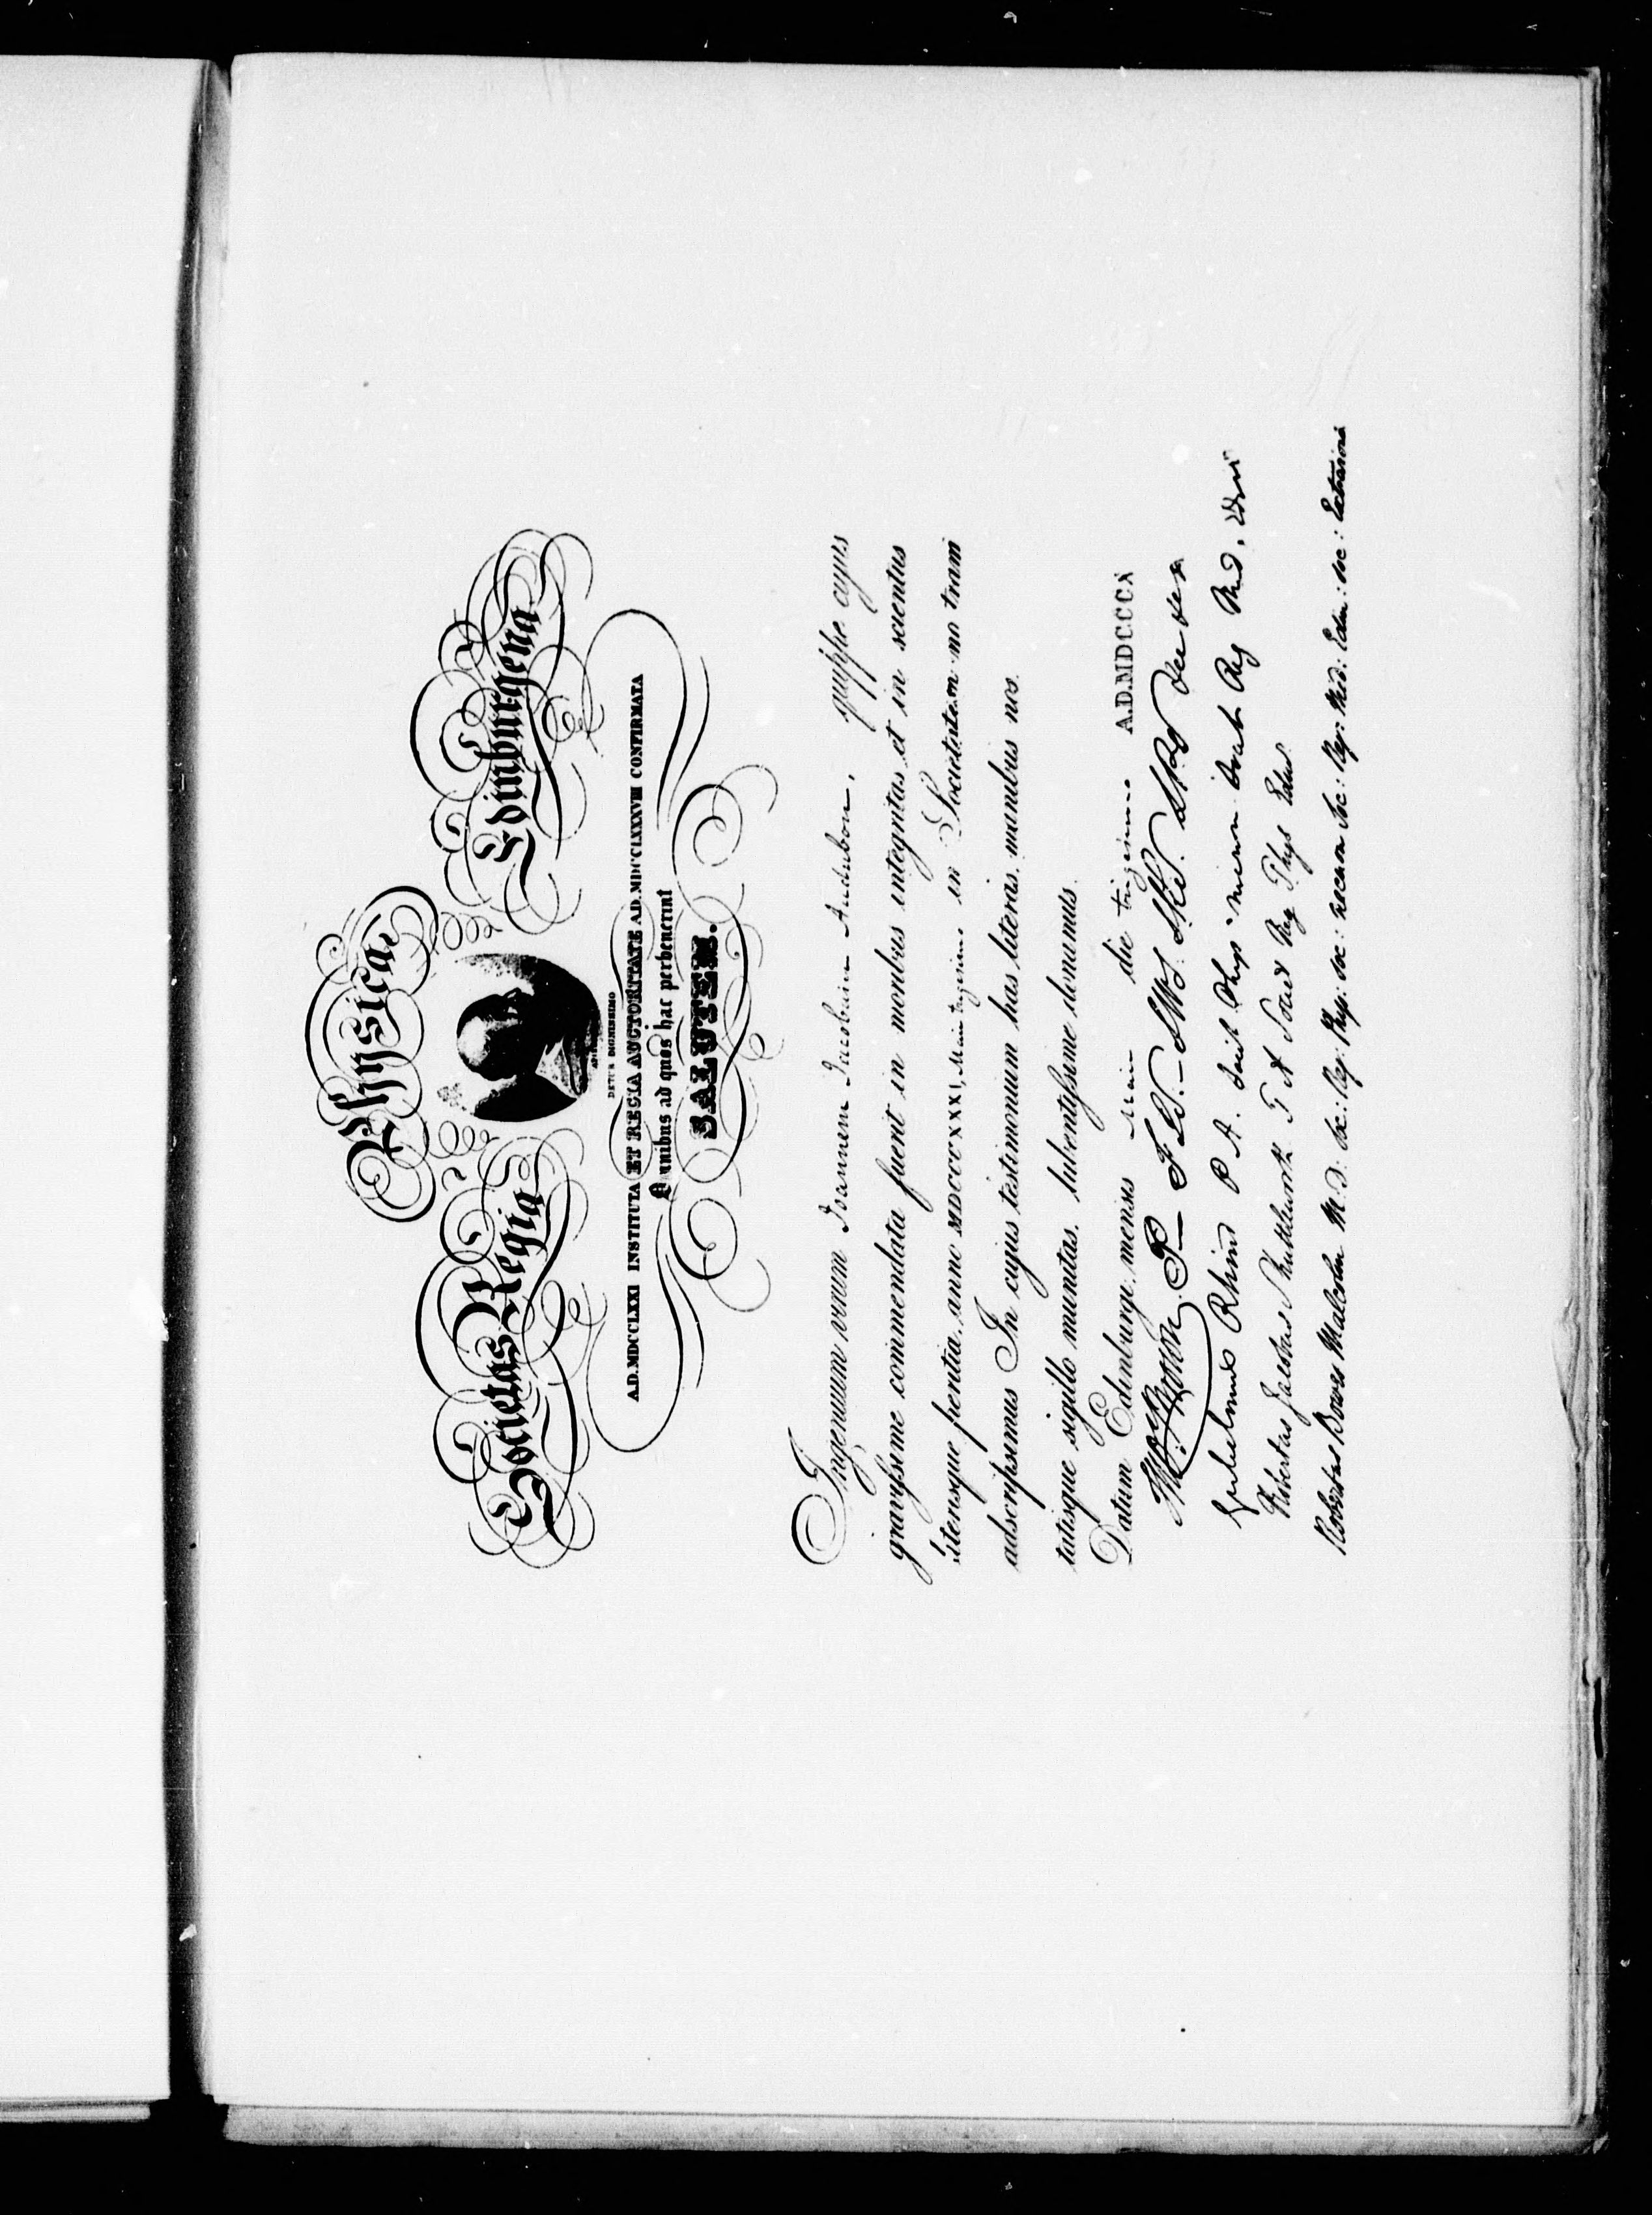 Societas Regia Physica Edinburgena
DETUR DIGNISSIMO
A.D. MDCCLXXI INSTITUTA ET REGIA AUCTORITATE A.D. MDCCLXXXVIII CONFIRMATA
Omnibus ad quos hæc pervenerint
SALUTEM.
Ingenuum virum Joannem Jacobum Audubon, quippe cujus
gravissime commendata fuerit in moribus integritas et in scientiis
literisque peritia, anno MDCCCXXXI, Maii trigesimo in Societatem nostram
adscripsimus In cujus testimonium has literas, manibus nos.
tatisque sigillo munitas, lubentissime donamus.
Datum Edinburgi, mensis Maii die trigesimo A.D. MDCCCX
Gulielmus Rhind
Robertus Jacobus Shuttleworth Reg Phys
Robertus Bowes Malcolm M.D. Soc: Reg: Phy: Soc: necnon Soc: Reg: Med: Edin: Soc: Extraord